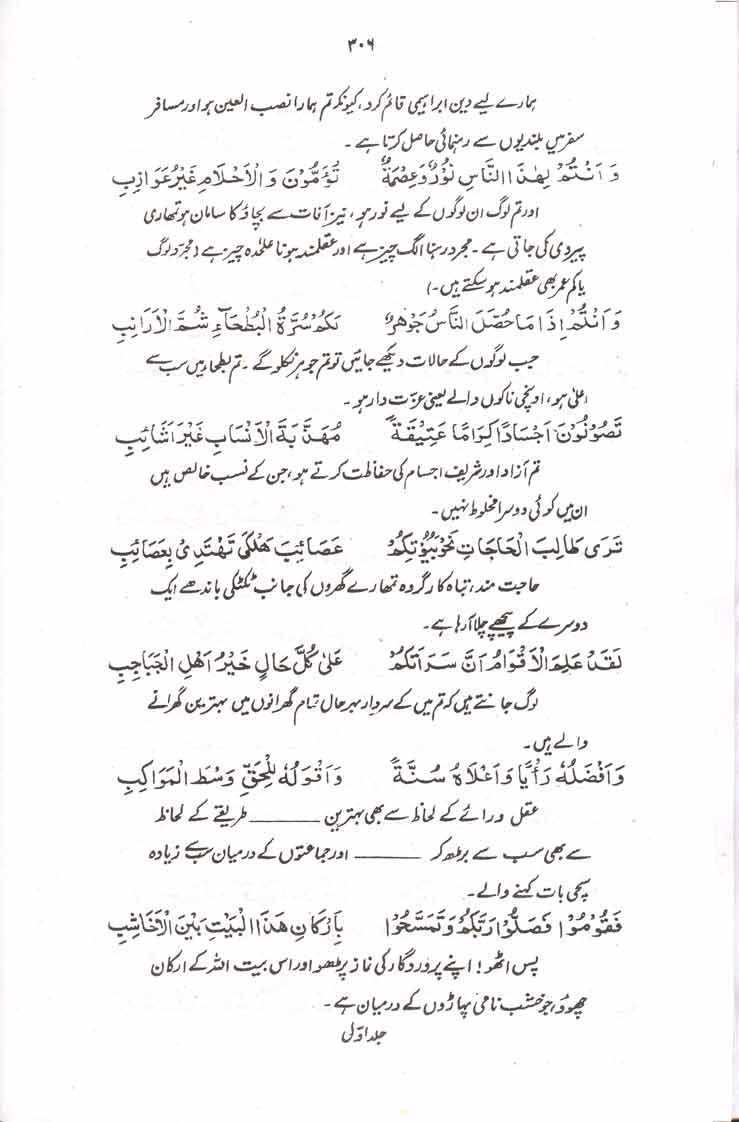 ۳۰۶
ہمارے لیے دین ابراہیمی قائم کرد، کیونکہ تم ہمارا نصب العین ہو اور مسافر
سفر میں بلندیوں سے رہنمائی حاصل کرتا ہے۔
وَ اَنْتُمْ بِهٰذَا النَّاسِ نُوْرٌ وَعِصْمَةٌ تُؤَمُّوْنَ وَ الْاَحْلَامِ غَيْرُ عَوَازِبِ
اور تم لوگ ان لوگوں کے لیے نور ہو، نیز آفات سے بچاؤ کا سامان ہو تمھاری
پیروی کی جاتی ہے۔ مجرد رہنا الگ چیز ہے اور عقلمند ہونا علٰحدہ چیز ہے (مجرّد لوگ
یا کم عمر بھی عقلمند ہو سکتے ہیں۔)
وَ اَنْتُمْ اِذَا مَا حُصِّلَ النَّاسُ جَوْهَرٌ لَكُمْ سُرَّةُ الْبُطْحَآءِ شُمُّ الْاَرَانِبِ
جب لوگوں کے حالات دیکھے جائیں تو تم جوہر نکلو گے۔ تم بطحاء میں سب سے
اعلیٰ ہو، اونچی ناکوں والے یعنی عزت دار ہو۔
تَصُوْنُوْنَ اَجْسَادًا كِرَامًا عَتِيْقَةً مُهَذَّبَةَ الْاَنْسَابِ غَيْرَ اَشَائِبِ
تم آزاد اور شریف اجسام کی حفاظت کرتے ہو، جن کے نسب خالص ہیں
ان میں کوئی دوسرا مخلوط نہیں۔
تَرَى طَالِبَ الْحَاجَاتِ نَحْوَ بُيُوْتِكُمْ عَصَائِبَ هَلْكَى تَهْتَدِىْ بِعَصَائِبِ
حاجت مند، تباہ کار گروہ تمھارے گھروں کی جانب ٹکٹکی باندھے ایک
دوسرے کے پیچھے چلا آ رہا ہے۔
لَقَدْ عَلِمَ الْاَقْوَامُ اَنَّ سَرَاتَكُمْ عَلٰى كُلِّ حَالٍ خَيْرُ اَهْلِ الْجَبَاجِبِ
لوگ جانتے ہیں کہ تم میں کے سردار بہر حال تمام گھرانوں میں بہترین گھرانے
والے ہیں۔
وَ اَفْضَلُهٗ رَأْيًا وَ اَعْلَاهُ سُنَّةً وَ اَقْوَلُهٗ لِلْحَقِّ وَسْطَ الْمَوَاكِبِ
عقل و رائے کے لحاظ سے بھی بہترین ــــــــ طریقے کے لحاظ
سے بھی سب سے بڑھ کر ــــــــ اور جماعتوں کے درمیان سب سے زیادہ
سچی بات کہنے والے۔
فَقُوْمُوْا فَصَلُّوْا رَبَّكُمْ وَ تَمَسَّحُوْا بِاَرْكَانِ هٰذَا الْبَيْتِ بَيْنَ الْاَخَاشِبِ
پس اٹھو! اپنے پروردگار کی نماز پڑھو اور اس بیت اللہ کے ارکان
چھوؤ، جو خشب نامی پہاڑوں کے درمیان ہے۔
جلد اوّل